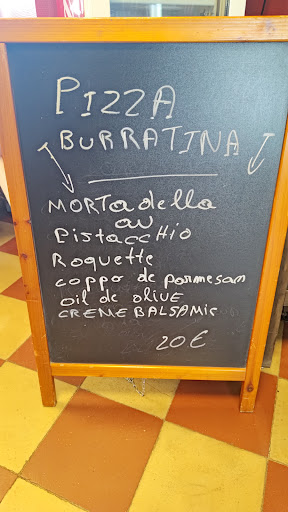 PIZZA
BURRATINA
MORTadella
au
PistaccHio
Roquette
coppo de parmesan
oil de oliVE
CREME BALSAMic
20€